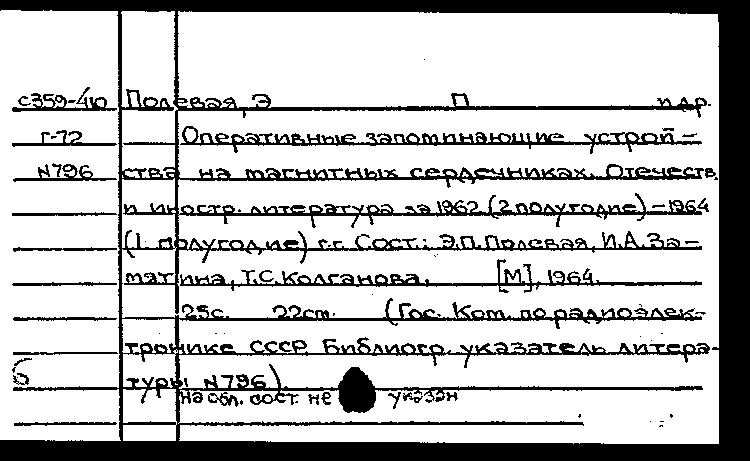 с359-40 Полевая, Э П и др.
Г-72 Оперативные запоминающие устрой-
N796 ства на магнитных сердечниках. Отечеств.
и иностр. литература за 1962 (2 полугодие) – 1964
(1. полугодие) г.г. Сост.: Э.П. Полевая, И.А. За-
мятина, Т.С. Колганова. [М], 1964.
25с. 22см. (Гос. Ком. по радиоэлек-
тронике СССР. Библиогр. указатель литера-
б туры N796).
на обл. сост. не указан